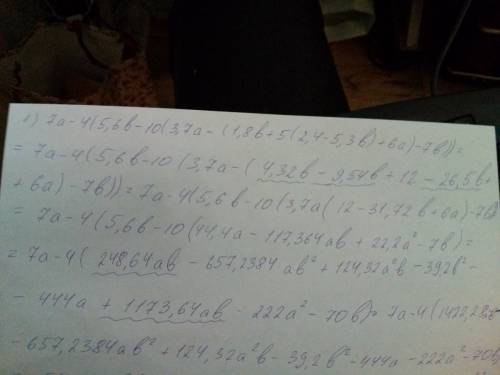 1) 7a-4(5,6b-10(3,7a-(1,8b+5(2,4-5,3b)+6a)-7b))=
= 7a-4(5,6b-10(3,7a-(4,32b-9,54b+12-26,5b+
+6a)-7b))=7a-4(5,6b-10(3,7a(12-31,72b+6a)-7b)
= 7a-4(5,6b-10(44,4a-117,364ab+22,2a²-7b)=
= 7a-4(248,64ab-657,2384ab²+124,32a²b-39,2b²-
- 444a+1173,64ab-222a²-70b)= 7a-4(1422,28ab
- 657,2384ab²+124,32a²b-39,2b²-444a-222a²-70b